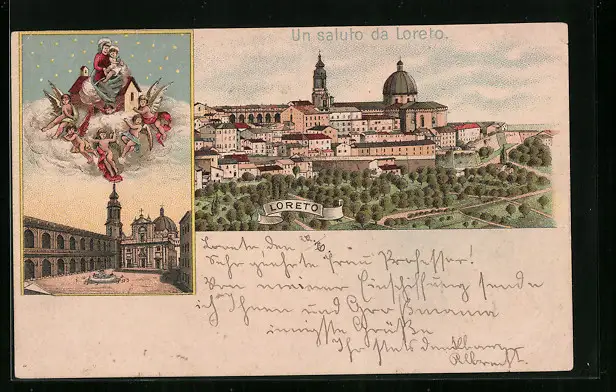 Un saluto da Loreto.
LORETO
Loreto den
Sehr geehrte Frau Professor!
Von meiner Einschiffung sende
ich Ihnen und Großmama
innigste Grüße
Ihr stets dankbarer
Albrecht.